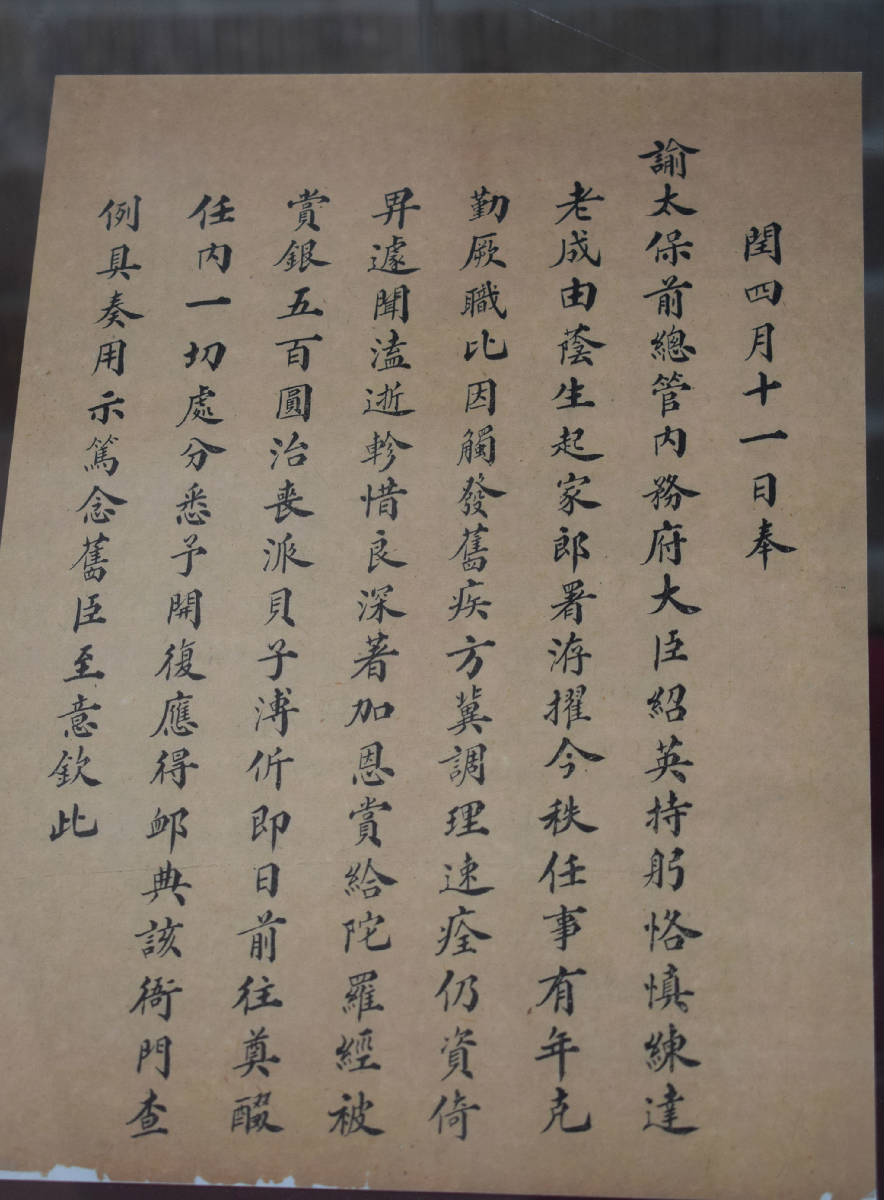 閏四月十一日奉
諭太保前總管內務府大臣紹英持躬恪慎練達
老成由蔭生起家郎署洊擢今秩任事有年克
勤厥職比因觸發舊疾方冀調理速痊仍資倚
畀遽聞溘逝軫惜良深著加恩賞給陀羅經被
賞銀五百圓治喪派貝子溥伒即日前往奠醊
任內一切處分悉予開復應得卹典該衙門查
例具奏用示篤念舊臣至意欽此